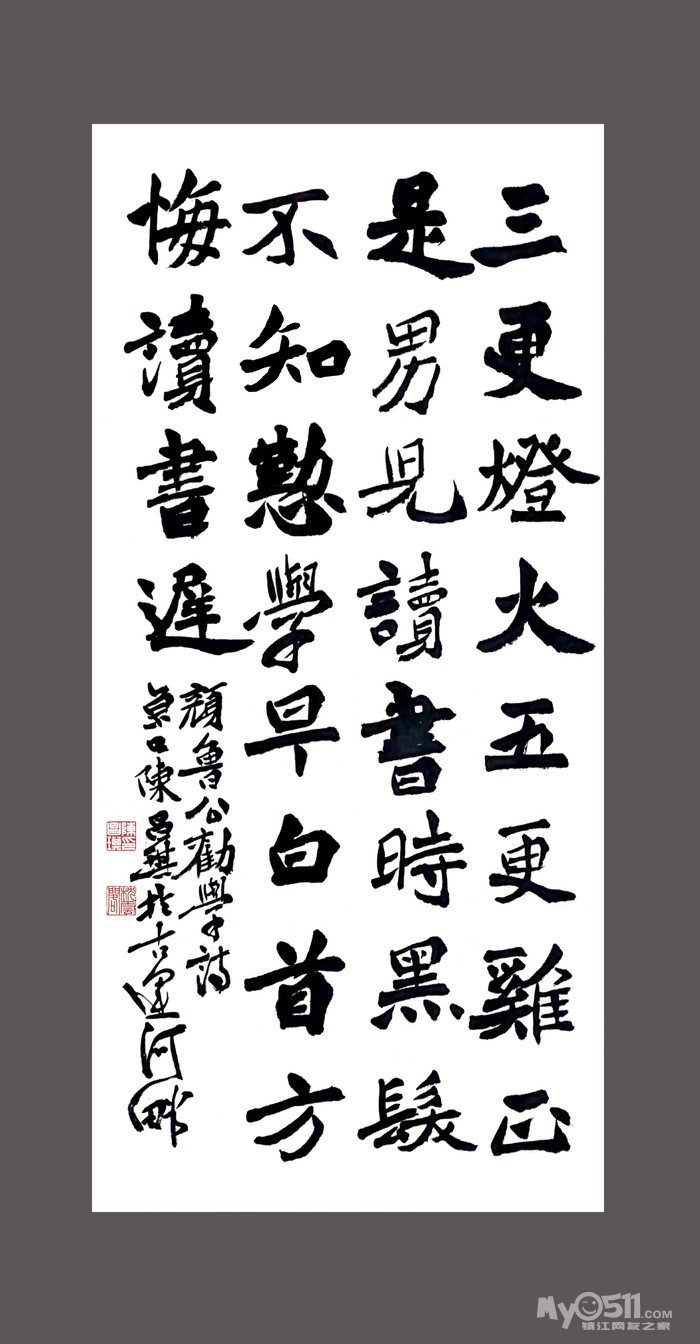 三更燈火五更雞正
是男兒讀書時黑髮
不知勤學早白首方
悔讀書遲
顏魯公勸學詩
陳昌㻽於古運河畔
My0511.com
镇江网友之家